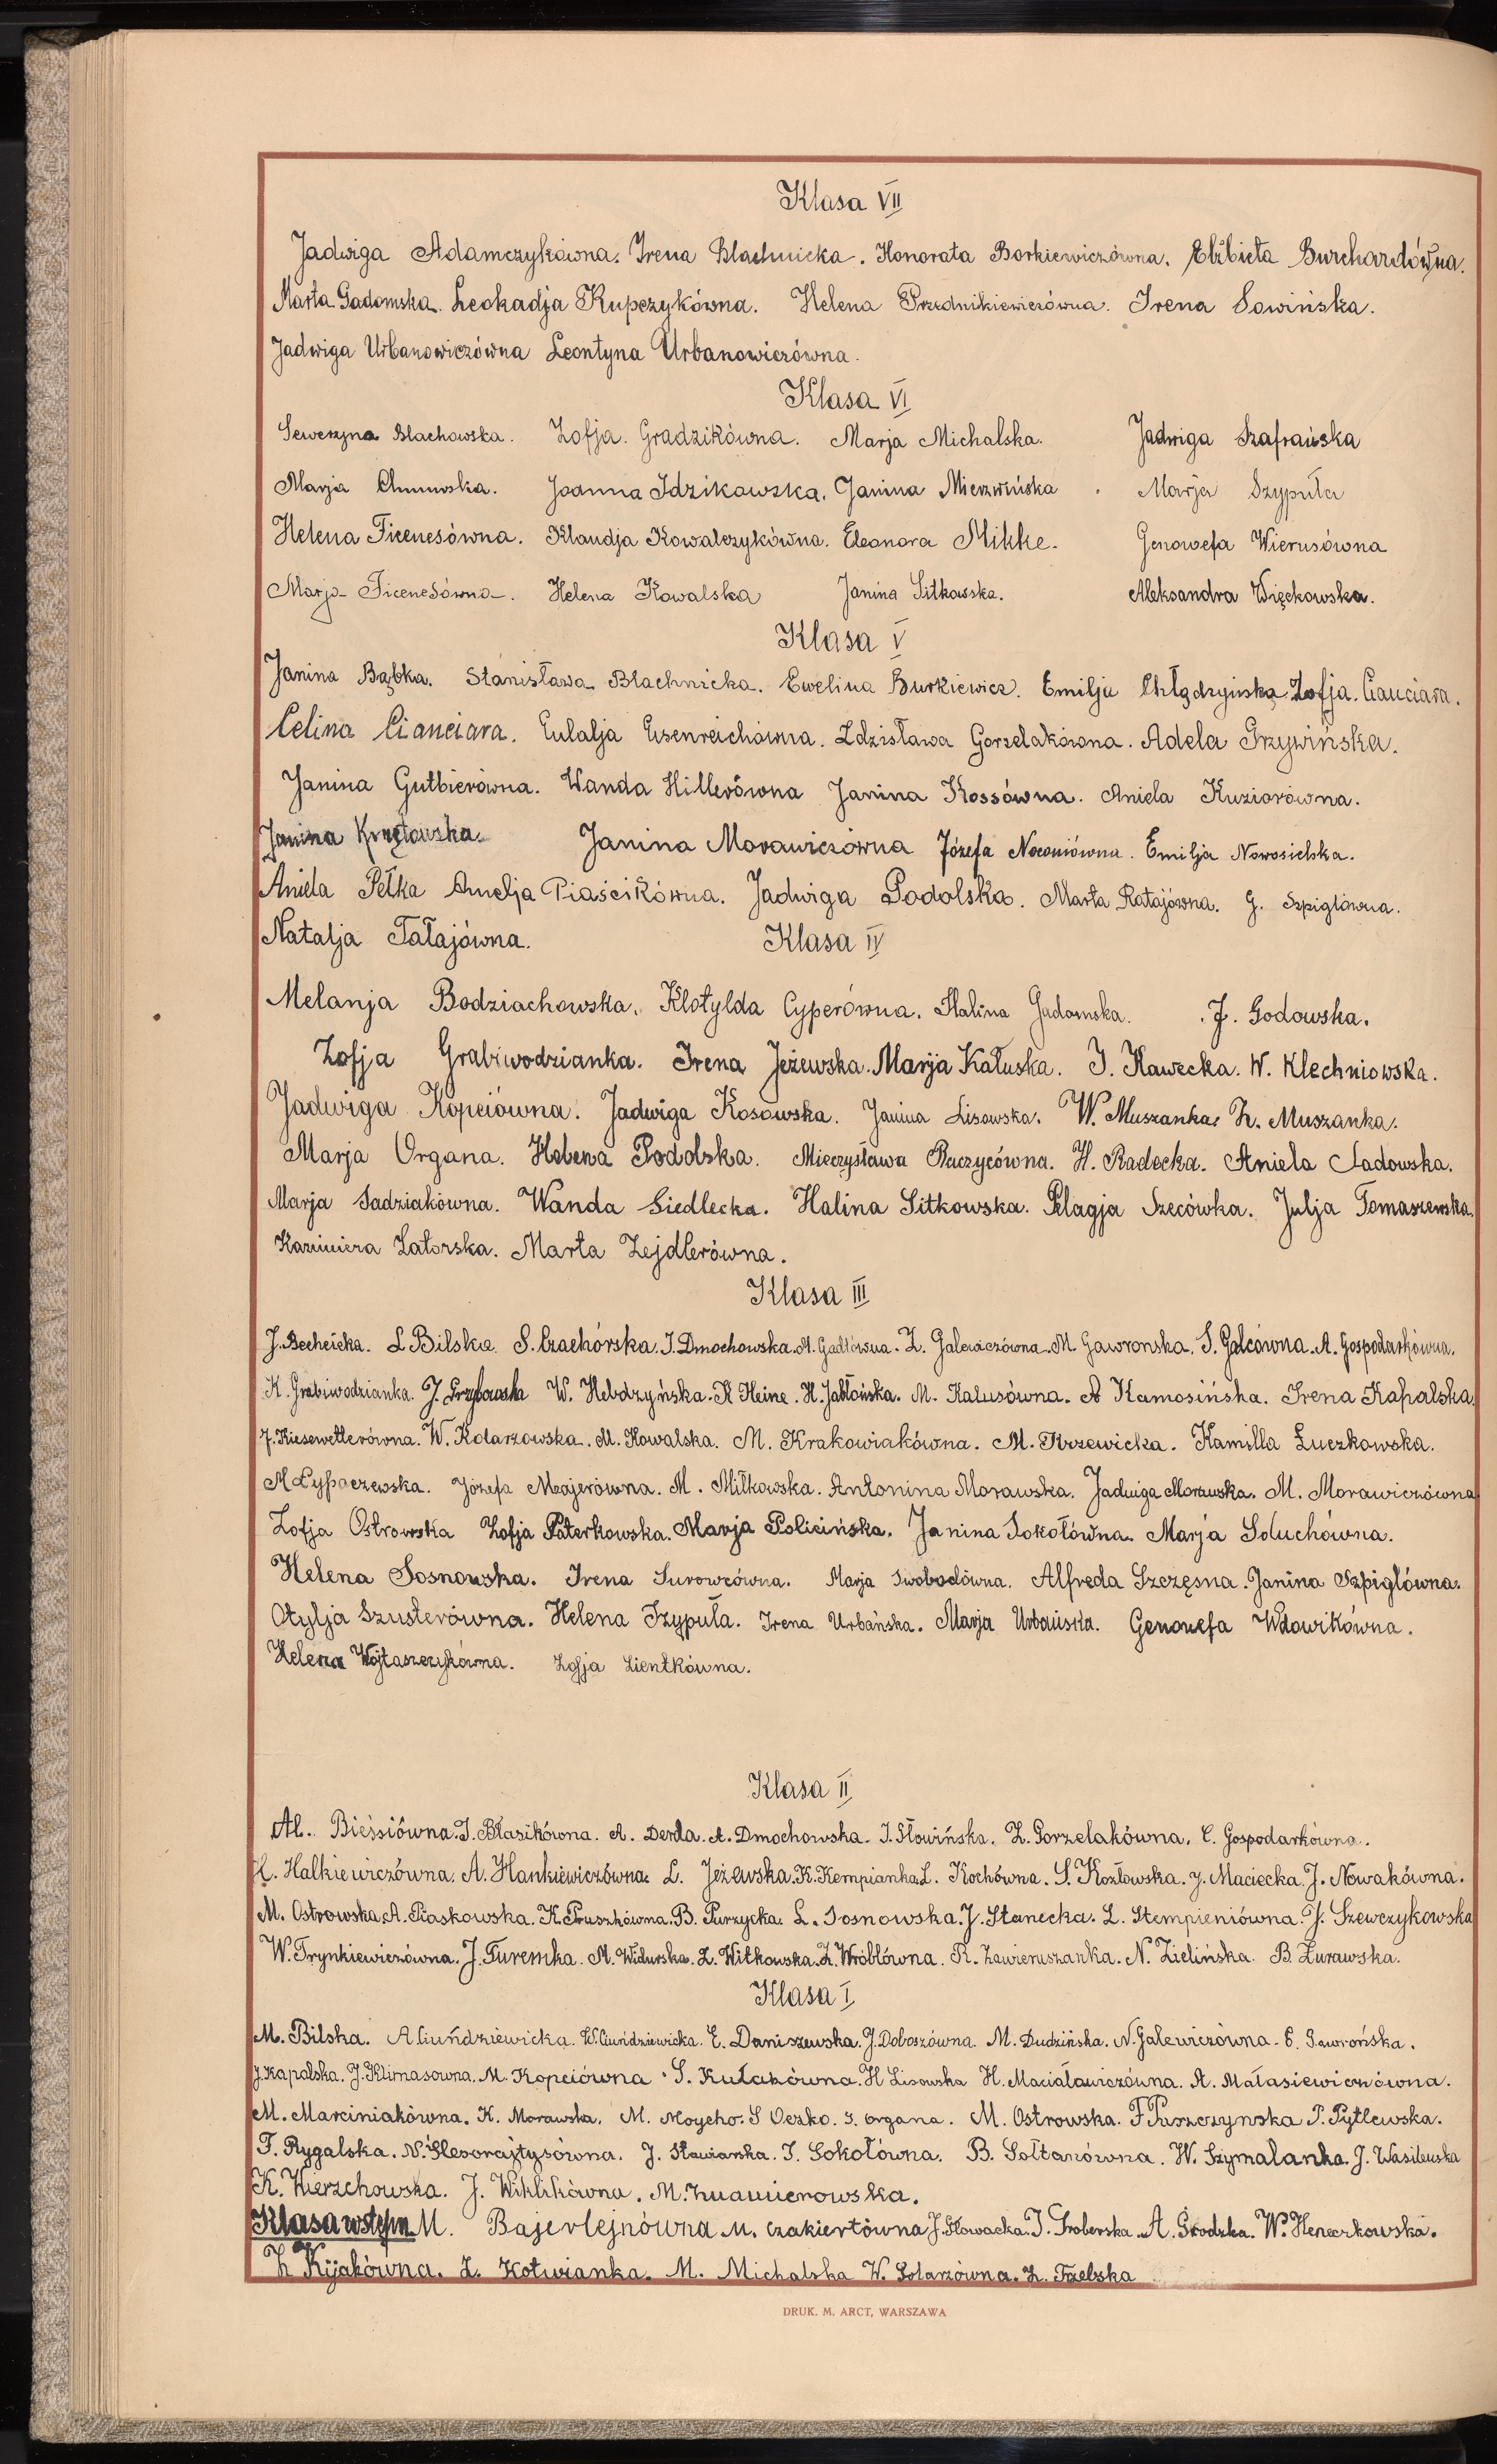 Klasa VII
Jadwiga Adamczykówna. Irena Blachnicka. Honorata Borkiewiczówna. Elżbieta Burchardówna.
Marta Gadomska. Leokadja Kupczykówna. Helena Przednikiewiczówna. Irena Sowińska.
Jadwiga Urbanowiczówna Leontyna Urbanowiczówna.
Klasa VI
Seweryna Blachowska. Zofja. Gradzikówna. Marja Michalska. Jadwiga Szafrańska
Marja Joanna Idzikowska. Janina Mierzwińska. Marja Szypuła
Helena Ficenesówna. Klaudja Kowalczykówna. Eleonora Mikke. Genowefa Wierusówna
Marja Ficenesówna. Helena Kowalska Janina Sitkowska. Aleksandra Więckowska.
Klasa V
Janina Bąbka. Stanisława Blachnicka. Ewelina Burkiewicz. Emilja Chłądzyńska Zofja. Cianciara.
Celina Cianciara. Eulalja Eisenreichówna. Zdzisława Gorzelakówna. Adela Grzywińska.
Janina Gutbierówna. Wanda Hillerówna Janina Kossówna. Aniela Kuziorówna.
Janina Krzętowska. Janina Morawiczówna Józefa Noconiówna. Emilja Nowosielska.
Aniela Pełka Amelja Piaścikówna. Jadwiga Podolska. Marta Ratajówna. G. Szpiglówna.
Natalja Tatajówna.
Klasa IV
Melanja Bodziachowska. Klotylda Cyperówna. Halina Gadomska. J. Godowska.
Zofja Grabiwodzianka. Irena Jeżewska. Marja Kałuska. I. Kawecka. W. Klechniowska.
Jadwiga Kopciówna. Jadwiga Kosowska. Janina Lisowska. W. Muszanka. Z. Muszanka.
Marja Organa. Helena Podolska. Mieczysława Puczycówna. H. Radecka. Aniela Sadowska.
Marja Sadziakówna. Wanda Siedlecka. Halina Sitkowska. Pelagja Szecówka. Julja Tomaszewska.
Kazimiera Zatorska. Marta Zejdlerówna.
Klasa III
J. Bechcicka. L Bilska. S. Czachórska. I. Dmochowska. M. Gadłówna. Z. Galewiczówna. M. Gawronska. S. Golcówna. A. Gospodarkówna.
K. Grabiwodzianka. J. Grzybowska W. Hebdzyńska. K Heine. H. Jabłońska. M. Kalusówna. A Kamosińska. Irena Kapalska.
J. Kiesewetterówna. W. Kolarzowska. M. Kowalska. M. Krakowiakówna. M. Krzewicka. Kamilla Łuczkowska.
M Łypaczewska. Józefa Majerówna. M. Miłkowska. Antonina Morawska. Jadwiga Morawska. M. Morawiczówna
Zofja Ostrowska Zofja Paterkowska. Marja Policińska. Janina Sokołówna. Marja Soluchówna.
Helena Sosnowska. Irena Surowcówna. Marja Swobodówna. Alfreda Szczęsna. Janina Szpiglówna.
Otylja Szusterówna. Helena Szypuła. Irena Urbańska. Marja Urbańska. Genowefa Wdowikówna.
Helena Wojtaszczykówna. Zofja Zientkówna.
Klasa II
Al. Biesiówna. J. Błasikówna. A. Derda. A. Dmochowska. I. Słowińska. Z. Gorzelakówna. C. Gospodarkówna.
H. Halkiewiczówna. A. Hankiewiczówna. L. Jeżewska. K. Kempianka. L. Kochówna. S. Kozłowska. J. Maciecka. J. Nowakówna.
M. Ostrowska. A. Piaskowska. K. Pruszkówna. B. Purzycka. L. Sosnowska. J. Stanecka. L. Stempieniówna. J. Szewczykowska
W. Trynkiewiczówna. J. Turemka. M. Widurska. Z. Witkowska. Z. Wróblówna. R. Zawieruszanka. N. Zielińska. B. Żurawska.
Klasa I
M. Bilska. A Ciuńdziewicka. W. Ciuńdziewicka. E. Daniszewska. J. Doboszówna. M. Dudzińska. N. Galewiczówna. Gawrońska.
J. Kapalska. J. Klimasowna. M. Kopciówna. S. Kułakówna. H Lisowska H. Maciaławiczówna. A. Małasiewiczówna.
M. Marciniakówna. K. Morawska. M. Moycho. S Oczko. S. Organa. M. Ostrowska. F Puszczynska P. Pytlewska.
F. Rygalska. N. J. Sławianka. I. Sokołówna. B. Sołtanówna. W. Szymalanka. J. Wasilewska
K. Wierzchowska. J. Wiklikówna. M. Znamierowska.
Klasa wstępn M. Bajerlejnówna M. Czakiertówna J. Głowacka. I. Groberska. A. Grodzka. W. Heneczkowska.
Z Kijakówna. Z. Kotwianka. M. Michalska W. Solarzówna. Z. Trzelska
DRUK. M. ARCT, WARSZAWA